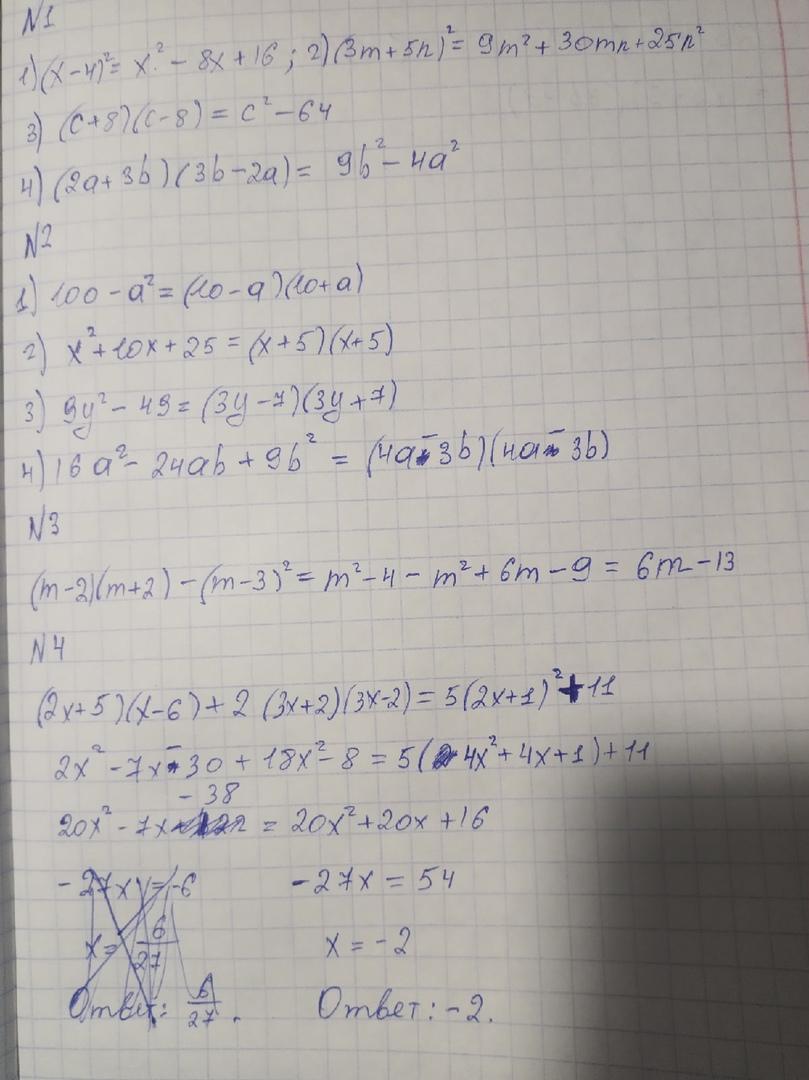 N1
1) (x-4)² = x² - 8x + 16 ; 2) (3m+5n)² = 9m² + 30mn + 25n²
3) (c+8)(c-8) = c² - 64
4) (2a+3b)(3b-2a) = 9b² - 4a²
N2
1) 100 - a² = (10-a)(10+a)
2) x² + 10x + 25 = (x+5)(x+5)
3) 9y² - 49 = (3y-7)(3y+7)
4) 16a² - 24ab + 9b² = (4a-3b)(4a-3b)
N3
(m-2)(m+2) - (m-3)² = m² - 4 - m² + 6m - 9 = 6m - 13
N4
(2x+5)(x-6) + 2(3x+2)(3x-2) = 5(2x+1)² + 11
2x² - 7x - 30 + 18x² - 8 = 5(4x² + 4x + 1) + 11
20x² - 7x - 38 = 20x² + 20x + 16
-27x = -6
-27x = 54
x = 6/27
x = -2
Ответ: 6/27.
Ответ: -2.